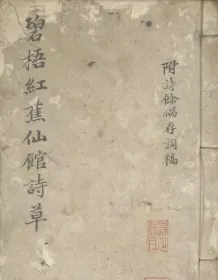 碧梧紅蕉仙館詩草
附詩餘偶存詞稿